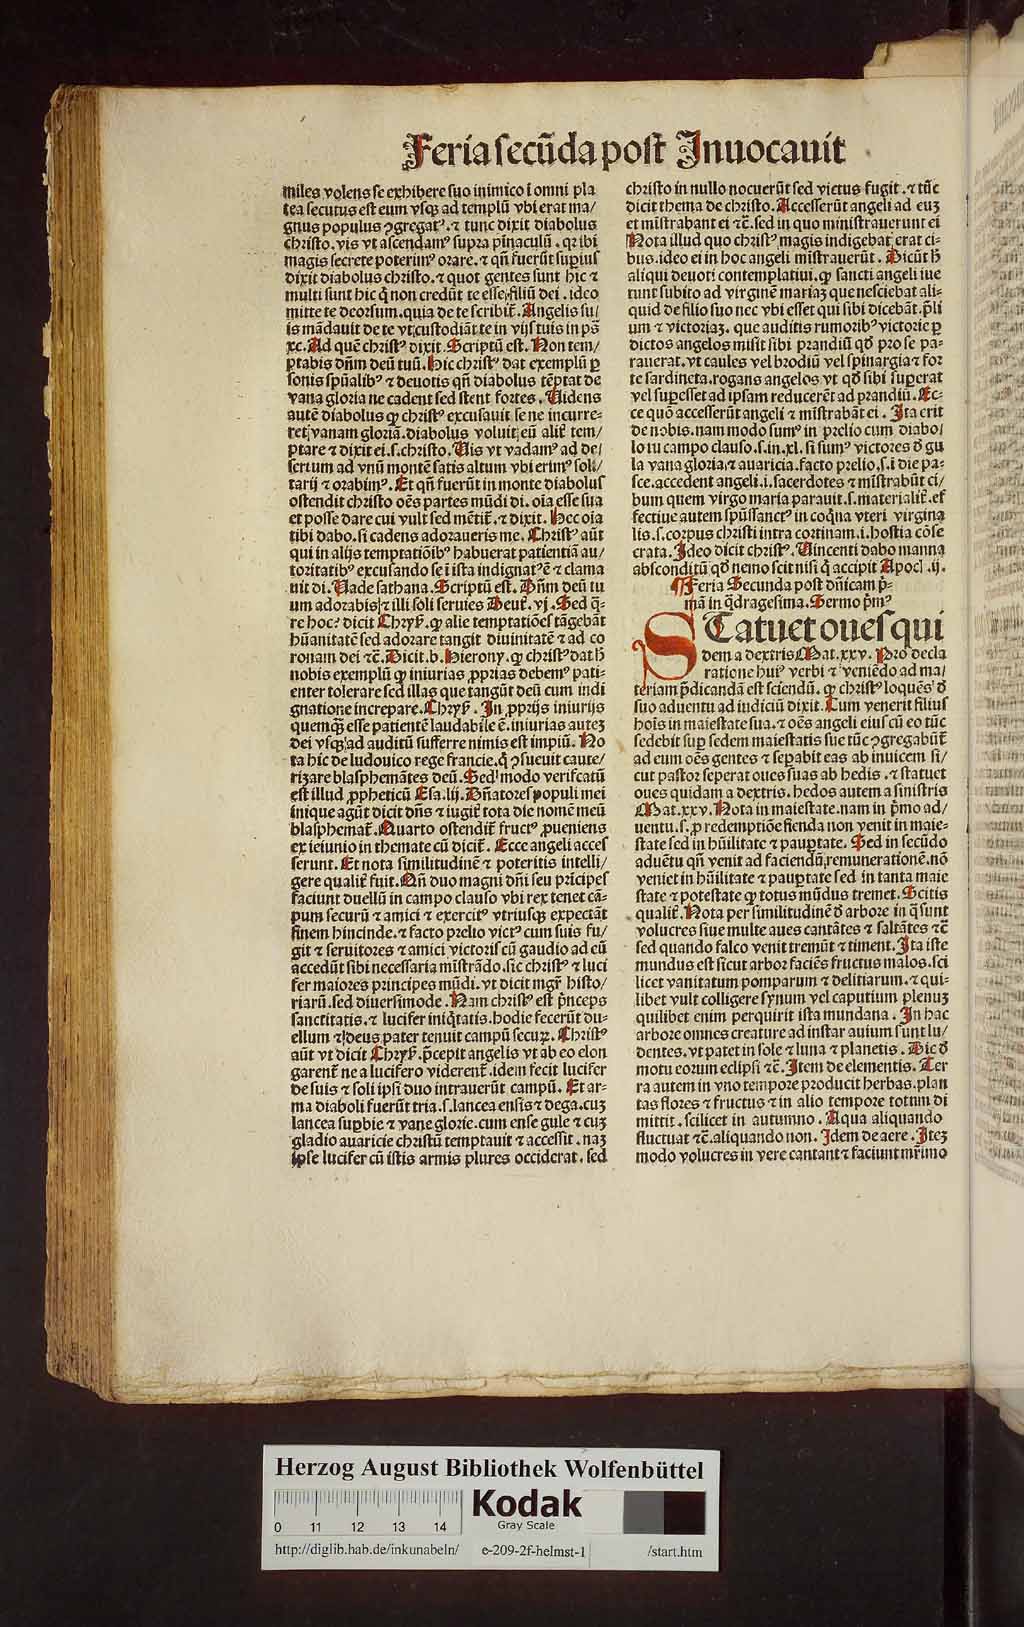 Feria secūda post Inuocauit
miles volens se exhibere suo inimico ī omni pla
tea secutus est eum vsqꝫ ad templū vbi erat ma/
gnus populus ꝯgregatꝰ. ⁊ tunc dixit diabolus
christo. vis vt ascendamꝰ supra pinaculū. qꝛ ibi
magis secrete poterimꝰ orare. ⁊ qñ fuerūt supius
dixit diabolus christo. ⁊ quot gentes sunt hic ⁊
multi sunt hic q̄ non credūt te esse filiū dei. ideo
mitte te deorsum. quia de te scribit̄. Angelis su/
is mādauit de te vt custodiāt te in vijs tuis in ps̄
xc. Ad quē christꝰ dixit. Scriptū est. Non tem/
ptabis dn̄m deū tuū. Hic christꝰ dat exemplū ꝑ
sonis spūalibꝰ ⁊ deuotis qñ diabolus tēptat de
vana gloria ne cadent sed stent fortes. Uidens
autē diabolus ꝙ christꝰ excusauit se ne incurre-
ret vanam gloriā. diabolus voluit eū alit̄ tem/
ptare ⁊ dixit ei. s. christo. Uis vt vadamꝰ ad de/
sertum ad vnū montē satis altum vbi erimꝰ soli/
tarij ⁊ orabimꝰ. Et qñ fuerūt in monte diabolus
ostendit christo oēs partes mūdi di. oīa esse sua
et posse dare cui vult sed mētit̄. ⁊ dixit. Hec oīa
tibi dabo. si cadens adoraueris me. Christꝰ aūt
qui in alijs temptatiōibꝰ habuerat patientiā au/
toritatibꝰ excusando se ī ista indignatꝰ ē ⁊ clama
uit di. Uade sathana. Scriptū est. Dn̄m deū tu
um adorabis ⁊ illi soli seruies Deut̄. vj. Sed q̄-
re hoc? dicit Chryẜ. ꝙ alie temptatiōes tāgebāt
hūanitatē sed adorare tangit diuinitatē ⁊ ad co
ronam dei ⁊c̄. Dicit. b. Hierony. ꝙ christꝰ dat h̄
nobis exemplū ꝙ iniurias ꝓprias debemꝰ pati-
enter tolerare sed illas que tangūt deū cum indi
gnatione increpare. Chryẜ. In ꝓprijs iniurijs
quemqꝫ esse patientē laudabile ē. iniurias auteꝫ
dei vsqꝫ ad auditū sufferre nimis est impiū. No
ta hic de ludouico rege francie. q̄ ꝯsueuit caute/
rizare blasphemātes deū. Sed modo verificatū
est illud ꝓpheticū Esa. lij. Dn̄atores populi mei
inique agūt dicit dn̄s ⁊ iugit̄ tota die nomē meū
blasphemat̄. Quarto ostendit̄ fructꝰ ꝓueniens
ex ieiunio in themate cū dicit̄. Ecce angeli acces
serunt. Et nota similitudinē ⁊ poteritis intelli/
gere qualit̄ fuit. Qñ duo magni dn̄i seu prīcipes
faciunt duellū in campo clauso vbi rex tenet cā-
pum securū ⁊ amici ⁊ exercitꝰ vtriusqꝫ expectāt
finem hincinde. ⁊ facto prelio victꝰ cum suis fu/
git ⁊ seruitores ⁊ amici victoris cū gaudio ad eū
accedūt sibi necessaria mīstrādo. sic christꝰ ⁊ luci
fer maiores principes mūdi. vt dicit mgr̄ histo/
riarū. sed diuersimode. Nam christꝰ est p̄nceps
sanctitatis. ⁊ lucifer iniq̄tatis. hodie fecerūt du-
ellum ⁊ deus pater tenuit campū secuꝝ. Christꝰ
aūt vt dicit Chryẜ. p̄cepit angelis vt ab eo elon
garent̄ ne a lucifero viderent̄. idem fecit lucifer
de suis ⁊ soli ipsi duo intrauerūt campū. Et ar-
ma diaboli fuerūt tria. s. lancea ensis ⁊ dega. cuꝫ
lancea suꝑbie ⁊ vane glorie. cum ense gule ⁊ cuꝫ
gladio auaricie christū temptauit ⁊ accessit. naꝫ
ipse lucifer cū istis armis plures occiderat. sed
christo in nullo nocuerūt sed victus fugit. ⁊ tūc
dicit thema de christo. Accesserūt angeli ad euꝫ
et mīstrabant ei ⁊c̄. sed in quo ministrauerunt ei
Nota illud quo christꝰ magis indigebat erat ci-
bus. ideo ei in hoc angeli mīstrauerūt. Dicūt h̄
aliqui deuoti contemplatiui. ꝙ sancti angeli iue
runt subito ad virginē mariaꝫ que nesciebat ali-
quid de filio suo nec vbi esset qui sibi dicebāt. p̄li
um ⁊ victoriaꝫ. que auditis rumoribꝰ victorie ꝑ
dictos angelos misit sibi prandiū qd̄ pro se pa-
rauerat. vt caules vel brodiū vel spinargia ⁊ for
te sardineta. rogans angelos vt qd̄ sibi suꝑerat
vel supesset ad ipsam reducerēt ad prandiū. Ec-
ce quō accesserūt angeli ⁊ mīstrabāt ei. Ita erit
de nobis. nam modo sumꝰ in prelio cum diabo/
lo tu campo clauso. s. in. xl. si sumꝰ victores ð gu
la vana gloria. ⁊ auaricia. facto prelio. s. i die pa-
sce. accedent angeli. i. sacerdotes ⁊ mīstrabūt ci/
bum quem virgo maria parauit. s. materialit̄. ef
fectiue autem spūssanctꝰ in coq̄na vteri virgina
lis. s. corpus christi intra cortinam. i. hostia cōse
crata. Ideo dicit christꝰ. Uincenti dabo manna
absconditū qd̄ nemo scit nisi q̄ accipit Apocl̄. ij.
¶ Feria Secunda post dn̄icam p̄-
mā in q̄dragesima. Sermo p̄mꝰ
STatuet oues qui
dem a dextris Mat. xxv. Pro decla
ratione huiꝰ verbi ⁊ veniēdo ad ma/
teriam p̄dicandā est sciendū. ꝙ christꝰ loquēs ð
suo aduentu ad iudiciū dixit. Cum venerit filius
hoīs in maiestate sua. ⁊ oēs angeli eius cū eo tūc
sedebit suꝑ sedem maiestatis sue tūc ꝯgregabūt̄
ad eum oēs gentes ⁊ seꝑabit eas ab inuicem si/
cut pastor seperat oues suas ab hedis. ⁊ statuet
oues quidam a dextris. hedos autem a sinistris
Mat. xxv. Nota in maiestate. nam in p̄mo ad/
uentu. s. ꝓ redemptiōe fienda non venit in maie-
state sed in hūilitate ⁊ pauꝑtate. Sed in secūdo
aduētu qñ venit ad faciendū remunerationē. nō
veniet in hūilitate ⁊ pauꝑtate sed in tanta maie
state ⁊ potestate ꝙ totus mūdus tremet. Scitis
qualit̄. Nota per similitudinē ð arbore in q̄ sunt
volucres siue multe aues cantātes ⁊ saltātes ⁊c̄
sed quando falco venit tremūt ⁊ timent. Ita iste
mundus est sicut arbor faciēs fructus malos. sci
licet vanitatum pomparum ⁊ delitiarum. ⁊ qui-
libet vult colligere synum vel caputium plenuꝫ
quilibet enim perquirit ista mundana. In hac
arbore omnes creature ad instar auium sunt lu/
dentes. vt patet in sole ⁊ luna ⁊ planetis. Dic ð
motu eorum eclipsi ⁊c̄. Item de elementis. Ter
ra autem in vno tempore producit herbas. plan
tas flores ⁊ fructus ⁊ in alio tempore totum di
mittit. scilicet in autumno. Aqua aliquando
fluctuat ⁊c̄. aliquando non. Idem de aere. Iteꝫ
modo volucres in vere cantant ⁊ faciunt mr̄imo
Herzog August Bibliothek Wolfenbüttel
0 11 12 13 14
Kodak
Gray Scale
http://diglib.hab.de/inkunabeln/ e-209-2f-helmst-1 /start.htm